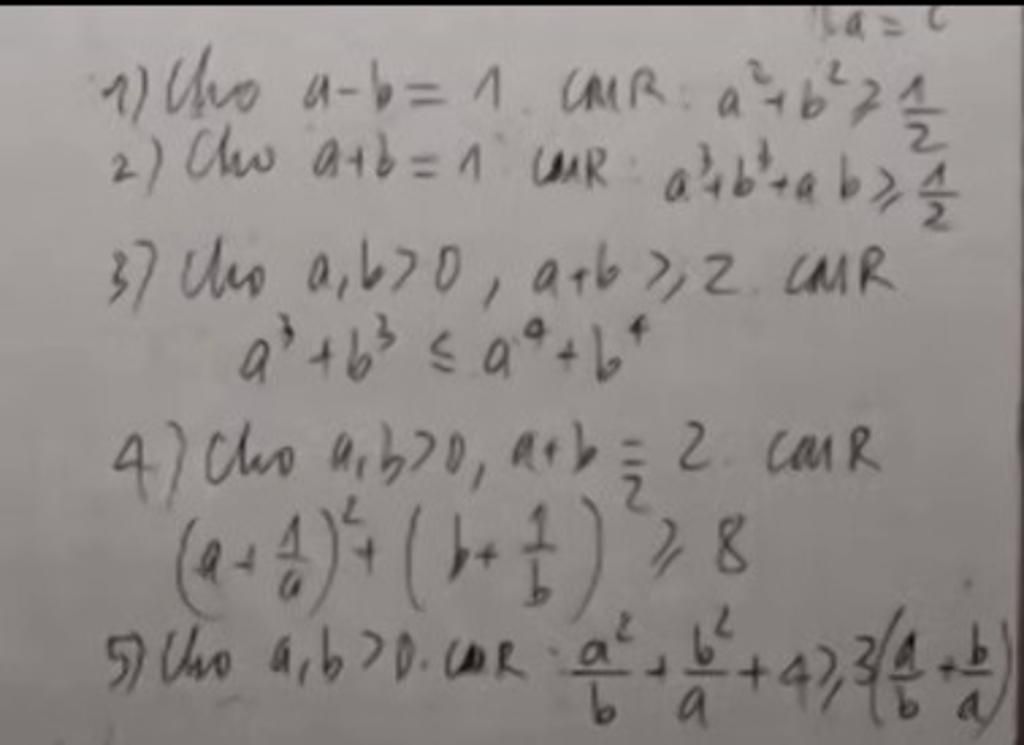 a = c
1) Cho a - b = 1. CMR: a² + b² ≥ 1/2
2) Cho a + b = 1 CMR: a³ + b³ + ab ≥ 1/2
3) Cho a, b > 0, a + b ≥ 2. CMR
a³ + b³ ≤ a⁴ + b⁴
4) Cho a, b > 0, a + b = 2. CMR
(a + 1/a)² + (b + 1/b)² ≥ 8
5) Cho a, b > 0. CMR: a²/b + b²/a + 4 ≥ 3(a/b + b/a)